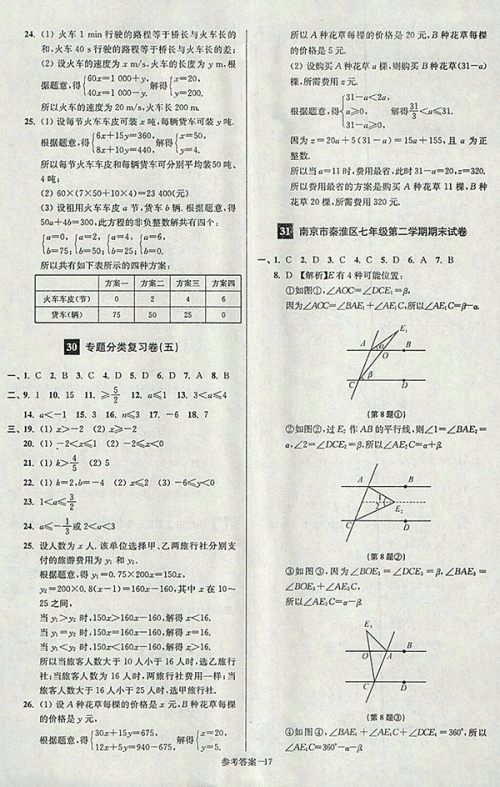 24. (1) 火车 1 min 行驶的路程等于桥长与火车长的
和,火车 40 s 行驶的路程等于桥长与火车长的差;
(2) 设火车的速度为 x m/s,火车的长度为 y m,根
据题意,得{60x=1 000+y, 40x=1 000-y. 解得{x=20, y=200.
所以火车的速度为 20 m/s,火车长 200 m.
25. (1) 设每节火车车皮可装 x 吨,每辆货车可装 y 吨.
根据题意,得{6x+15y=360, 8x+10y=440. 解得{x=50, y=4.
所以每节火车车皮和每辆货车可分别平均装50 吨、
4 吨;
(2) 60×(7×50+10×4)=23 400(元)
(3) 设租用火车车皮 a 节,货车 b 辆. 根据题意,得
50a+4b=300,此方程的非负整数解共有四个:
{a=0, b=75; {a=2, b=50; {a=4, b=25; {a=6, b=0.
所以共有如下表所示的四种方案:
方案一 方案二 方案三 方案四
火车车皮(节) 0 2 4 6
货车(辆) 75 50 25 0
30 专题分类复习卷(五)
一、1. C 2. B 3. C 4. D 5. D 6. D 7. A 8. B
二、9. 1 10. 15 11. ≥5/2 12. a≤1 13. 3<a≤4
14. a<-1 15. 3 16. n≤3 17. -6 18. 7
三、19. (1) x>-2 (2) x≥-2
20. (1) -2<x≤1 (2) -2≤x<0
21. (1) k>4/5 (2) 5
22. (1) k=2,b=-4 (2) x≤2 (3) -6≤y<0
23. 1<a≤3/2
24. a≤-1/3或 2<a<3
25. 设人数为 x 人. 该单位选择甲、乙两旅行社分别支
付的旅游费用为 y₁ 和 y₂.
根据题意,得 y₁=0.75×200x=150x,
y₂=200×0.8(x-1)=160x-160,其中 x 在 10~
25 之间,
当 y₁>y₂ 时,150x>160x-160,解得 x<16.
当 y₁=y₂ 时,150x=160x-160,解得 x=16.
当 y₁<y₂ 时,150x<160x-160,解得 x>16.
所以当旅客人数大于 10 人小于 16 人时,选乙旅行
社;当旅客人数为 16 人时,两旅行社费用一样;当
旅客人数大于 16 人小于 25 人时,选甲旅行社.
26. (1) 设 A 种花草每棵的价格是 x 元,B 种花草每棵
的价格是 y 元,
根据题意,得{30x+15y=675, 12x+5y=940-675, 解得{x=20, y=5.
所以 A 种花草每棵的价格是 20 元,B 种花草每棵
的价格是 5 元.
(2) 设购买 A 种花草 a 棵,则购买 B 种花草(31-a)
棵,所需费用 z 元.
根据题意,得{31-a<2a, a≥0, 31-a≥0, 解得31/3<a≤31.
因为 z=20a+5(31-a)=15a+155,且 a 为正
整数.
所以当 a=11 时,费用最省,此时 31-a=20,z=320.
所以费用最省的方案是购买 A 种花草 11 棵,B 种
花草 20 棵,所需费用 320 元.
31 南京市秦淮区七年级第二学期期末试卷
一、1. C 2. D 3. C 4. C 5. D 6. A 7. B
8. D 【解析】E 有 4 种可能位置:
①如图①,∠AOC=∠DCE₁=β,
因为∠AOC=∠BAE₁+∠AE₁C,所以∠AE₁C=β-α.
E₁
A α B
O
C β D
(第 8 题①)
②如图②,过 E₂ 作 AB 的平行线,则∠1=∠BAE₂=
α,∠2=∠DCE₂=β.所以∠AE₂C=α+β.
A B
1
2 E₂
C D
(第 8 题②)
③如图③,因为∠BOE₃=∠DCE₃=β,∠BAE₃=
∠BOE₃+∠AE₃C,
所以∠AE₃C=α-β.
E₃
O A B
C D
(第 8 题③)
④如图④,∠BAE₄+∠AE₄C+∠DCE₄=360°,所以
∠AE₄C=360°-α-β.
参考答案—17